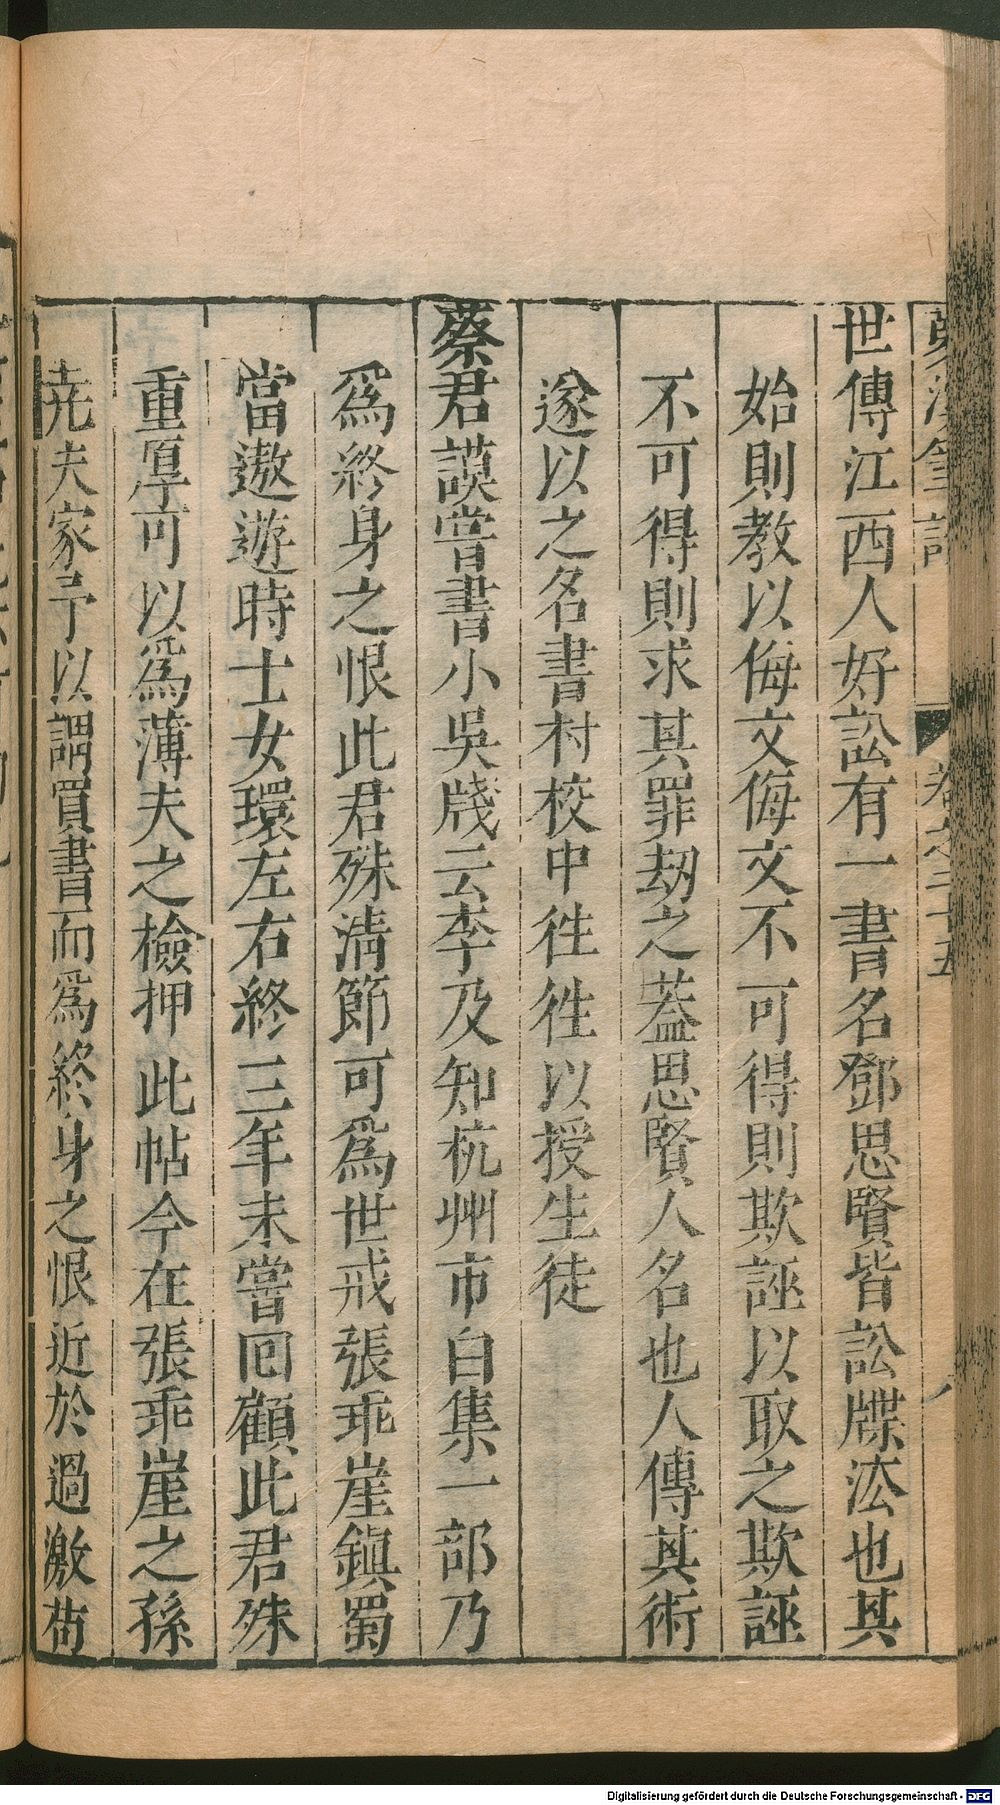 夢溪筆談 卷之二十五 八
世傳江西人好訟有一書名鄧思賢皆訟牒法也其
始則教以侮文侮文不可得則欺誣以取之欺誣
不可得則求其罪劫之葢思賢人名也人傳其術
遂以之名書村校中徃徃以授生徒
蔡君謨嘗書小吳牋云李及知杭州市白集一部乃
爲終身之恨此君殊清節可爲世戒張乖崖鎮蜀
當遨遊時士女環左右終三年未嘗回顧此君殊
重厚可以爲薄夫之檢押此帖今在張乖崖之孫
尭夫家予以謂買書而爲終身之恨近於過激苟
Digitalisierung gefördert durch die Deutsche Forschungsgemeinschaft - DFG